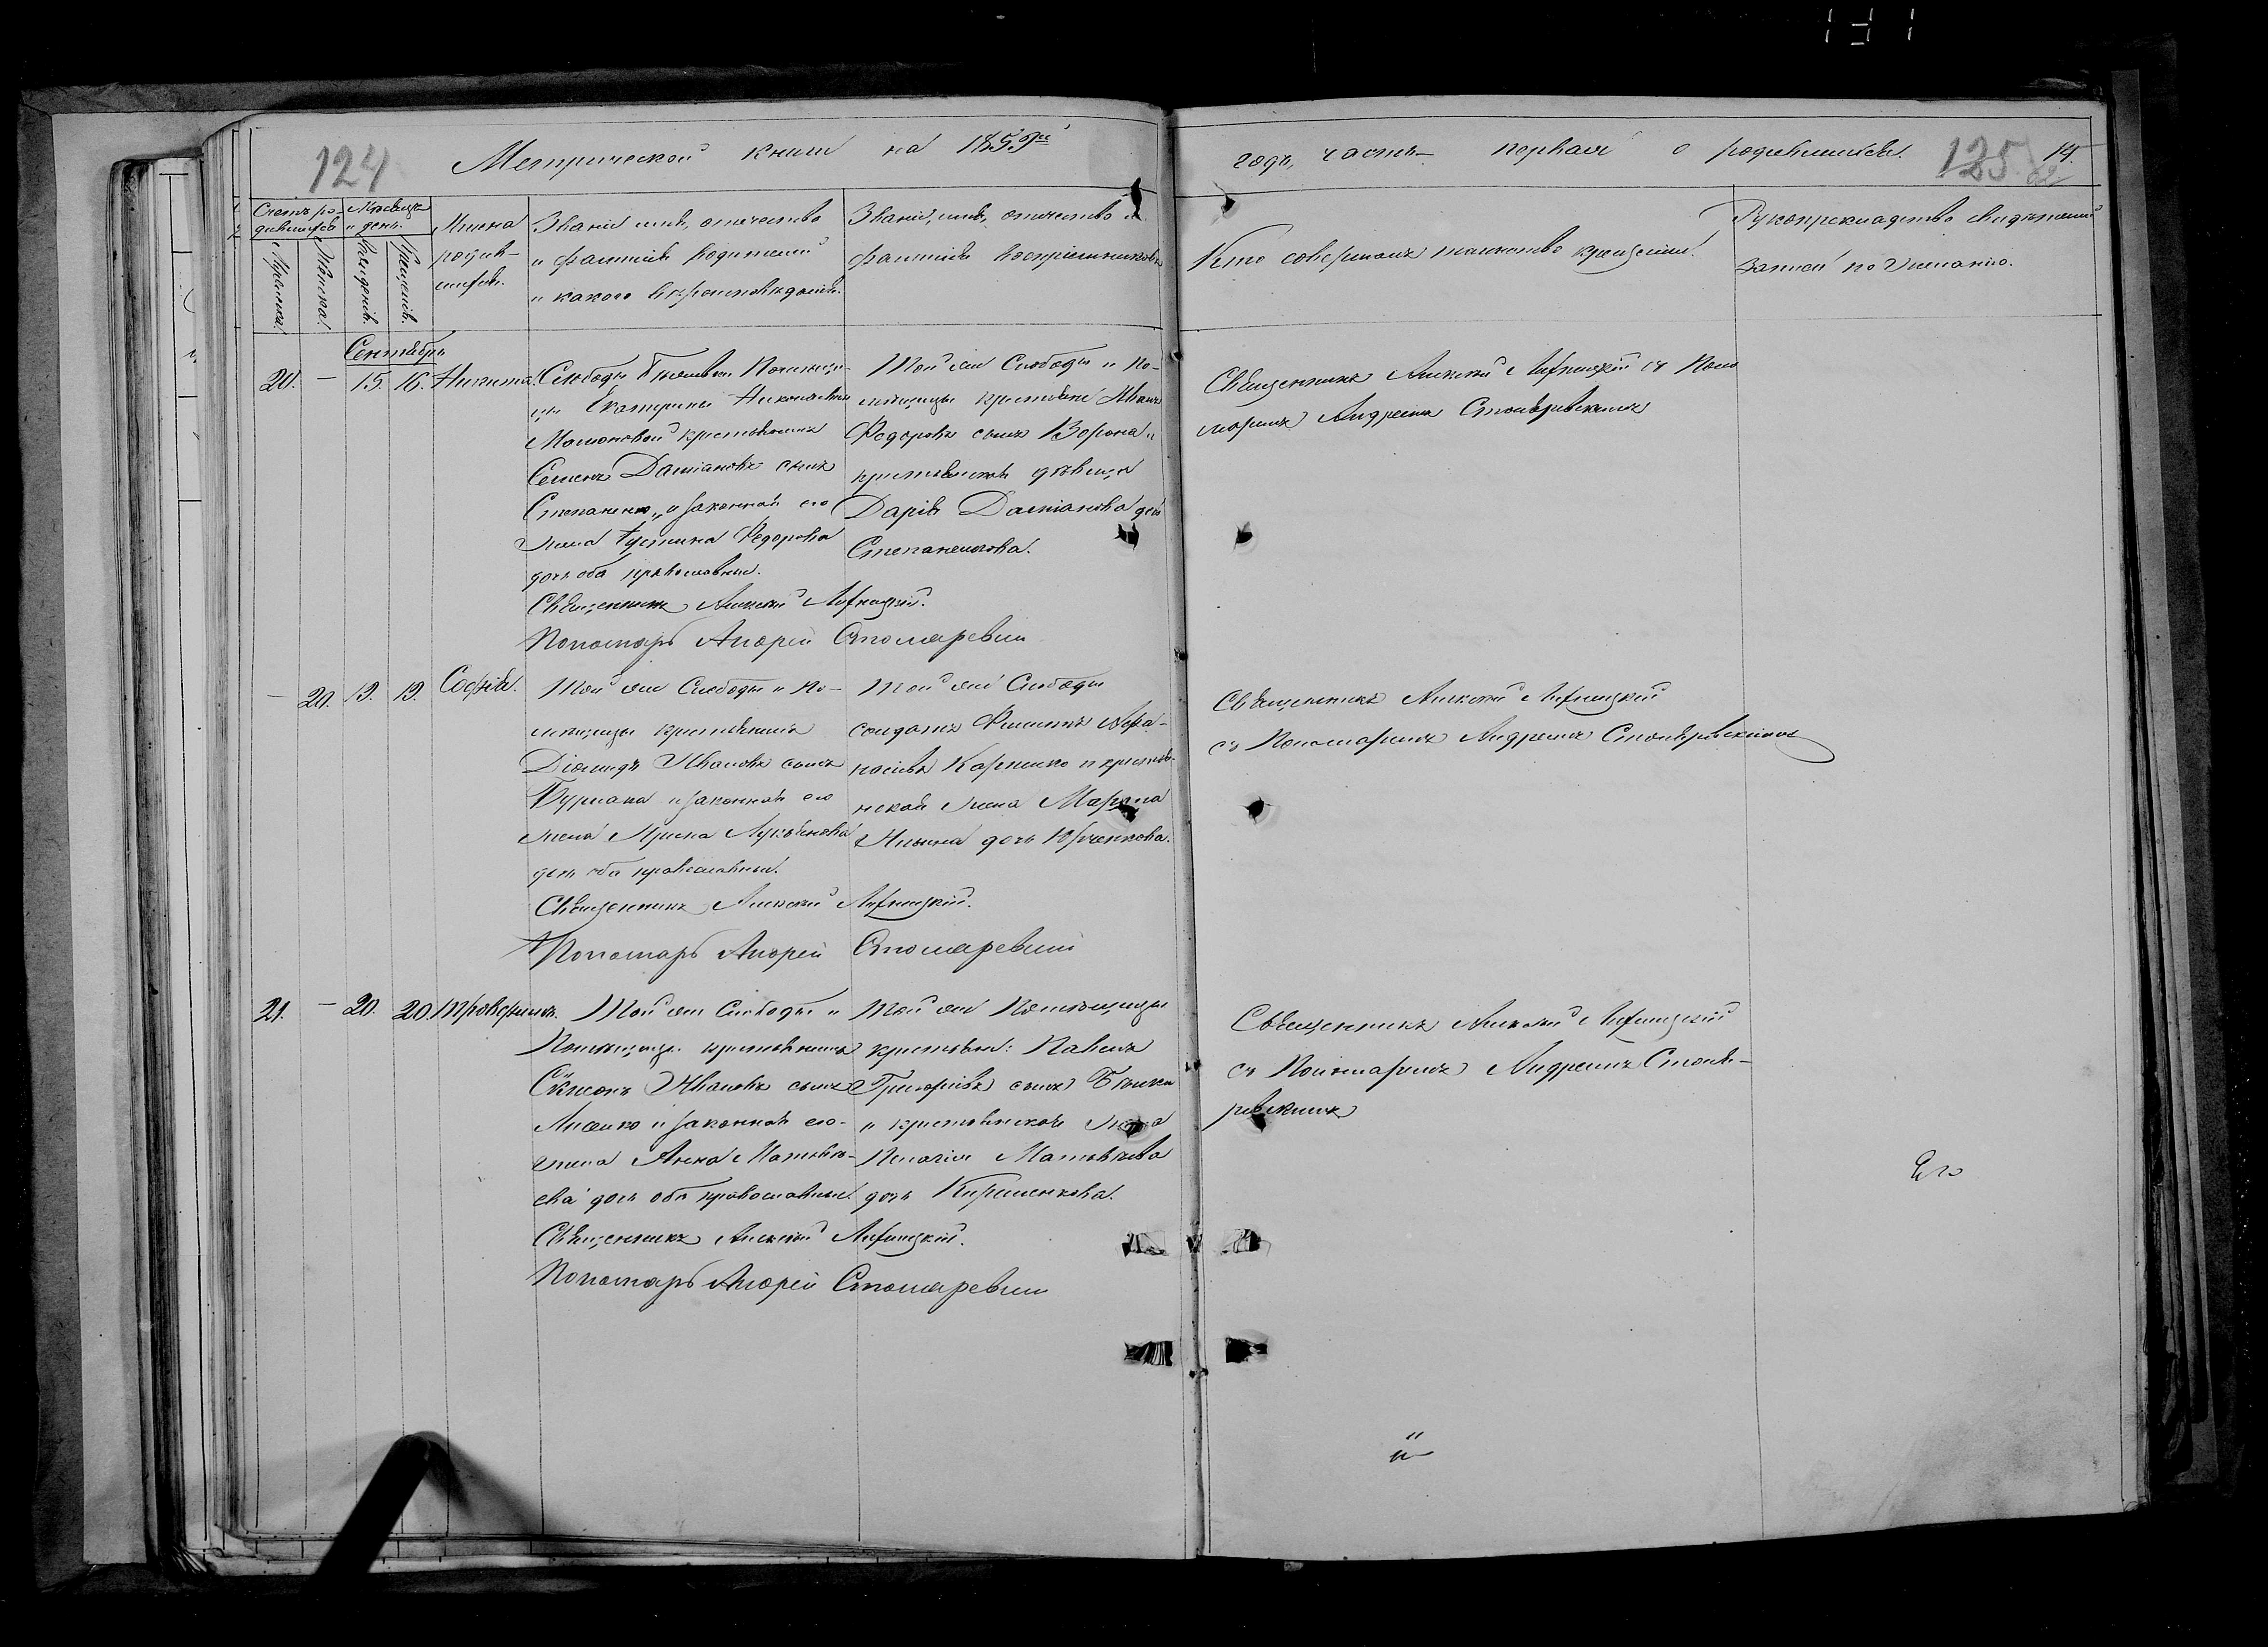 124
Метрической книги на 1859й
годъ, часть первая о родившихся.
125
Счетъ ро-
дившихся
Мѣсяцъ
и день.
Мужеска.
Женска.
Рожденія.
Крещенія.
Имена
родив-
шихся.
Званіе имя, отчество
и фамилія родителей
и какого вѣроисповѣданія.
Званіе, имя, отчество и
фамилія воспріемниковъ
Кто совершалъ таинство крещенія.
Рукоприкладство свидѣтелей
записи по желанію.
Сентябрь
20. — 15. 16. Никита.
Слободы помѣщи-
цы Екатерины Николаевны
крестьянинъ
Семенъ Даміановъ сынъ
Степаненко, и законная его
жена Іустина Федорова
дочь оба православные.
Священникъ Алексій
Пономарь Андрей Столяревскій
Той же Слободы и по-
мѣщицы крестьяне Иванъ
Федоровъ сынъ Ворона и
крестьянская дѣвица
Дарія Даміанова дочь
Степаненкова.
Священникъ Алексій съ Поно
маремъ Андреемъ Столяревскимъ
— 20. 19. 19. Софія.
Той же Слободы и по-
мѣщицы крестьянинъ
Діомидъ Ивановъ сынъ
Бурлака и законная его
жена Ирина Лукьянова
дочь оба православные.
Священникъ Алексій
Пономарь Андрей Столяревскій
Той же Слободы
солдатъ Филиппъ Афа-
насіевъ Карпенко и крестья-
нская жена Марѳа
Ильина дочь Юрченкова.
Священникъ Алексій
съ Пономаремъ Андреемъ Столяревскимъ
21. — 20. 20. Трофимъ.
Той же Слободы и
Помѣщицы крестьянинъ
Сѵмеонъ Ивановъ сынъ
Лисенко и законная его
жена Анна Матвѣе-
ва дочь оба православные.
Священникъ Алексій
Пономарь Андрей Столяревскій
Той же Помѣщицы
крестьян: Павелъ
Григоріевъ сынъ
и крестьянская жена
Пелагія Матвѣева
дочь Кириленкова.
Священникъ Алексій
съ Пономаремъ Андреемъ Столя-
ревскимъ